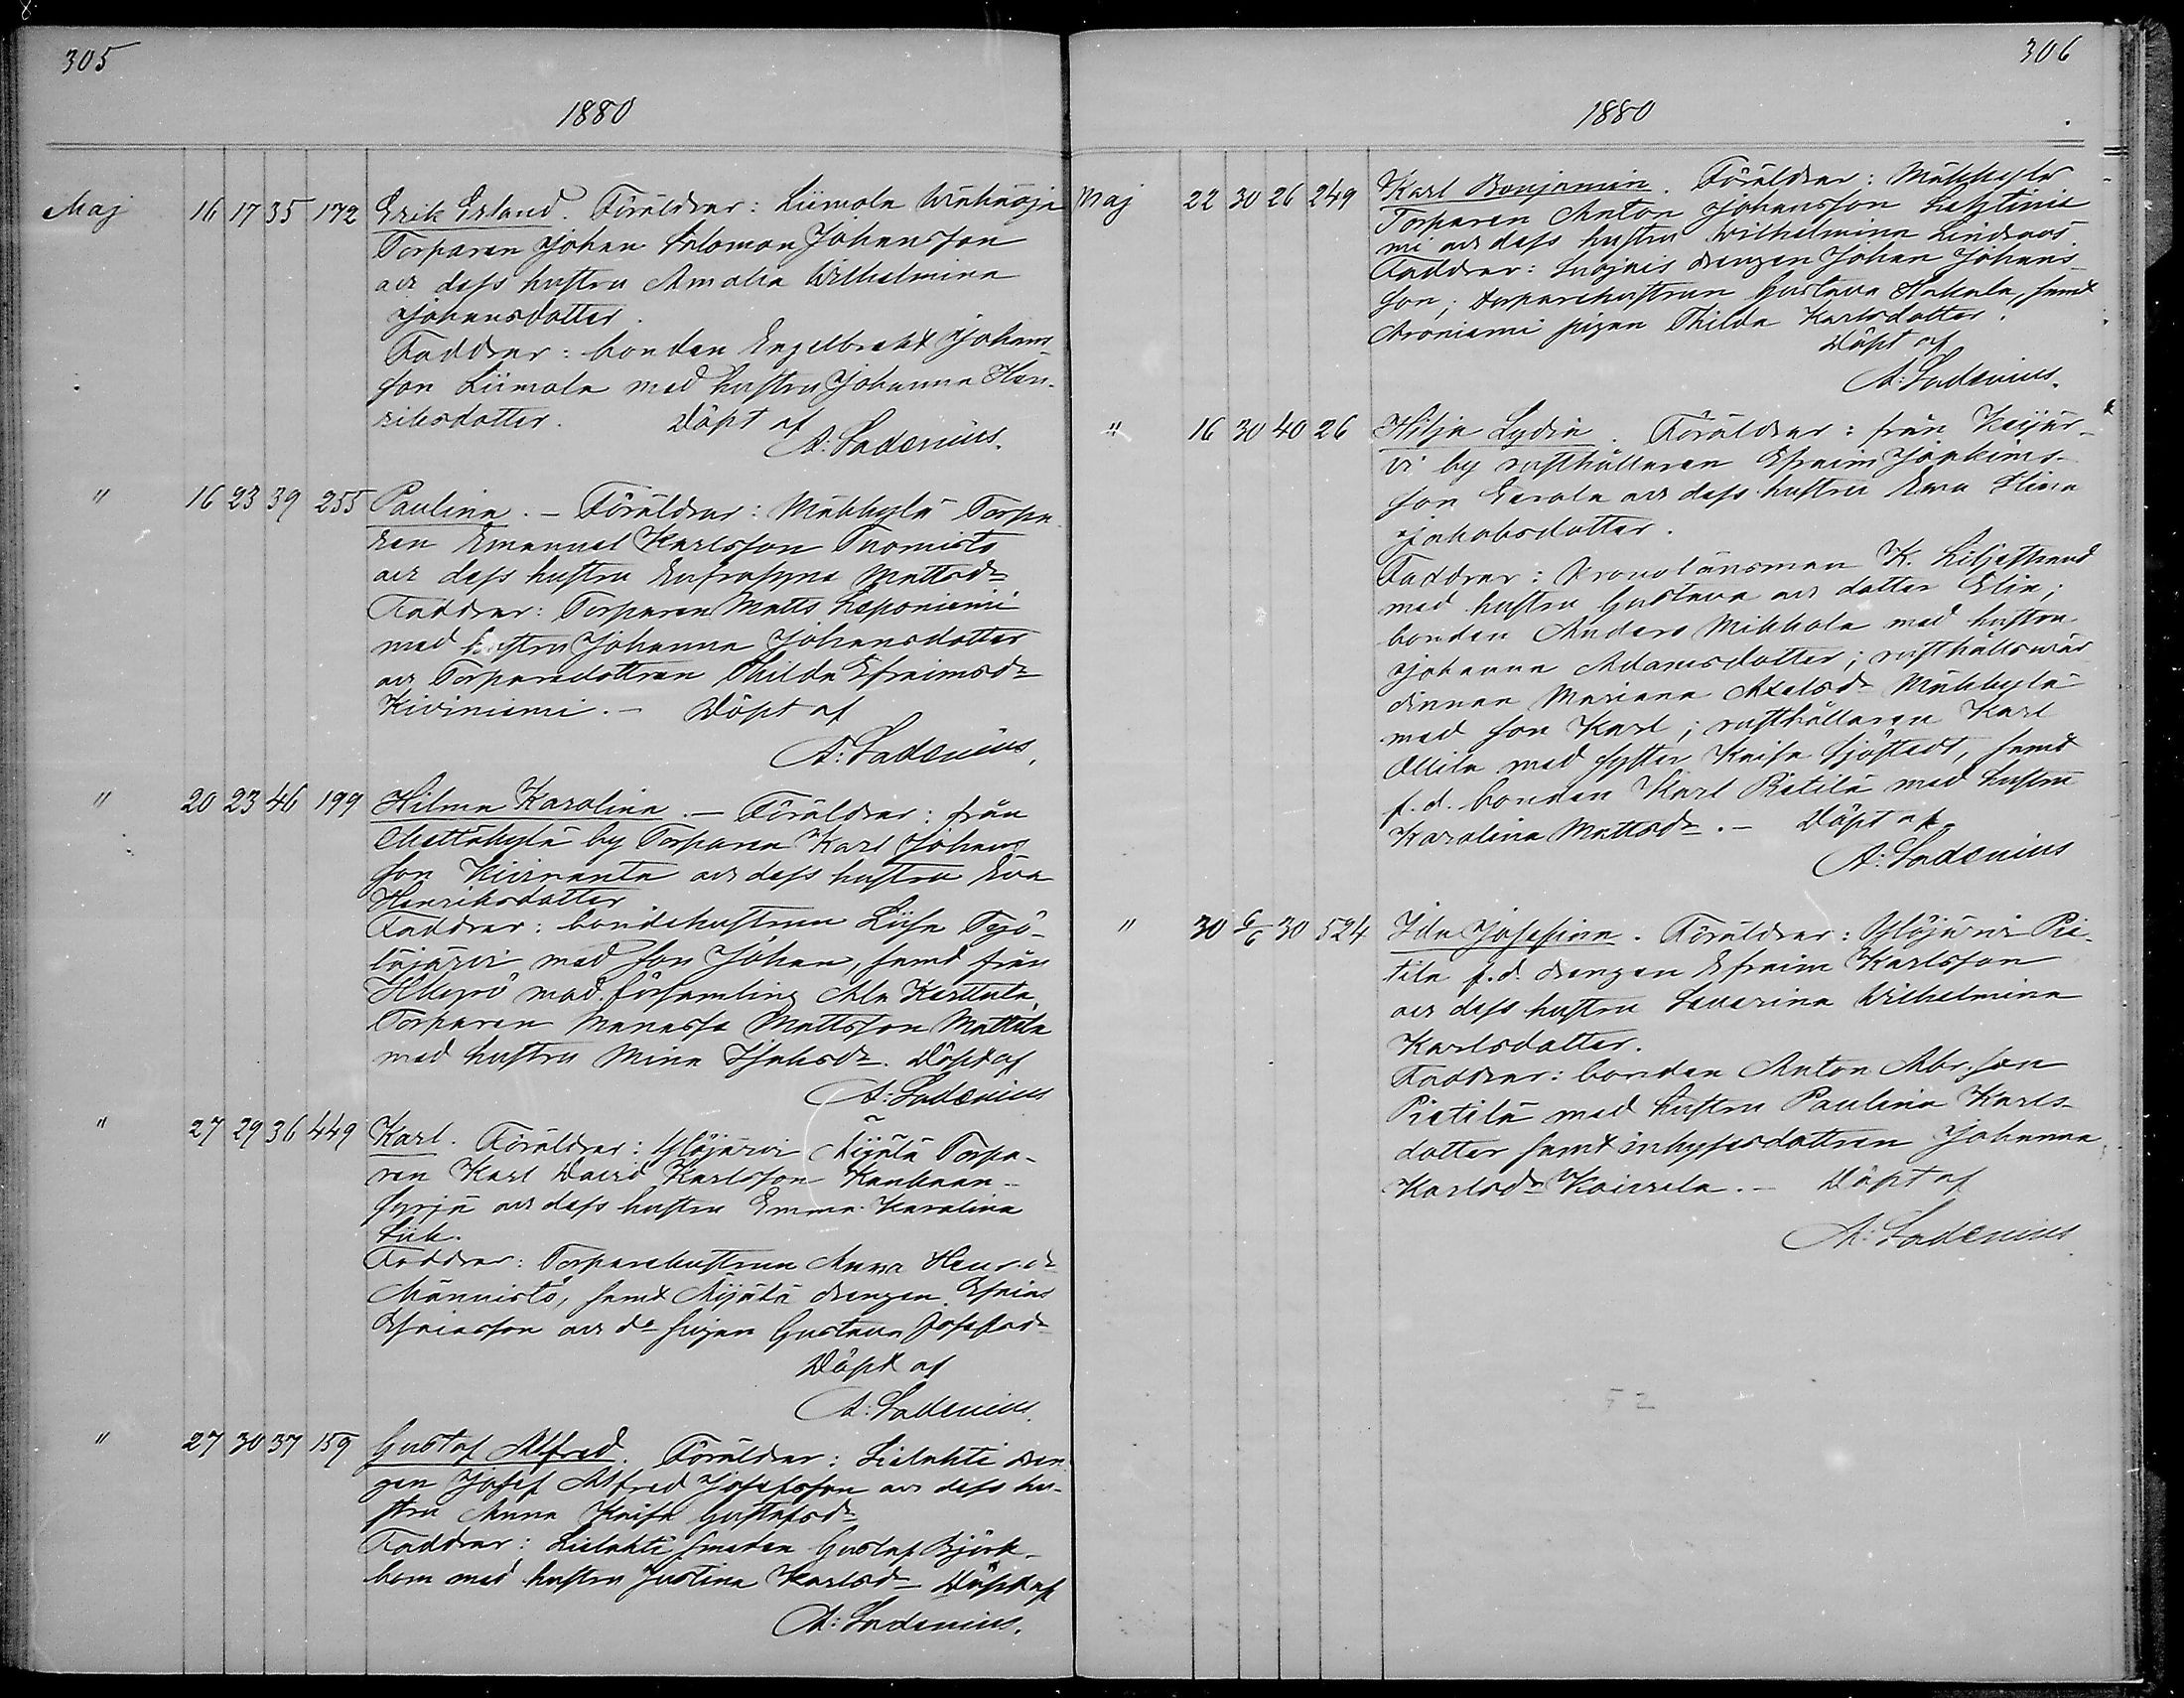 305
1880
Maj 16 17 35 172 Erik Erland. Föräldrar: Liimola Wähäoja
Torparen Johan Salomon Johansson
och dess hustru Amalia Wilhelmina
Johansdotter.
Faddrar: bonden Engelbrekt Johans-
son Liimola med hustru Johanna Hen-
riksdotter. Döpt af
A: Ladenius.
" 16 23 39 255 Paulina. – Föräldrar: Mäkkylä Torpa-
ren Emanuel Karlsson Tuomisto
och dess hustru Eufrosyne Mattsdr
Faddrar: Torparen Matts Leponiemi
med hustru Johanna Johansdotter
och Torparedottren Thilda Efraimsdr
Kiviniemi. – Döpt af
A: Ladenius.
" 20 23 46 199 Hilma Karolina. – Föräldrar: från
Mettäkylä by Torparen Karl Johans
son Kiviranta och dess hustru Eva
Henriksdotter
Faddrar: bondehustrun Liisa Työ-
läjärvi med son Johan, samt från
Ikkyrö mod. församling Ala Karttula,
Torparen Manasse Mattsson Mattila
med hustru Mina Isaksdr. Döpt af
A: Ladenius
" 27 29 36 449 Karl. Föräldrar: Ylöjärvi Äijälä Torpa-
ren Karl David Karlsson Kauhaan-
syrjä och dess hustru Emma Karolina
Liik.
Faddrar: Torparehustrun Anna Henr.dr
Männistö, samt Äijälä drengen Efraim
Efraimsson och do pigan Gustava Josefsdr
Döpt af
A: Ladenius.
" 27 30 37 159 Gustaf Alfred. Föräldrar: Lielahti dren
gen Josef Alfred Josefsson och dess hu-
stru Anna Kaisa Gustafsdr
Faddrar: Lielahti smeden Gustaf Björk-
bom med hustru Justina Karlsdr Döpt af
A: Ladenius.
306
1880
Maj 22 30 26 249 Karl Benjamin. Föräldrar: Mäkkylä
Torparen Anton Johansson Lehtinie
mi och dess hustru Wilhelmina Lindroos.
Faddrar: drengen Johan Johans-
son; torparehustrun Gustava Hakala, samt
Aroniemi pigan Thilda Karlsdotter.
Döpt af
A: Ladenius.
" 16 30 40 26 Hilja Lydia. Föräldrar: från Keijär-
vi by rusthållaren Efraim Joakims-
son Eerola och dess hustru Eva Stina
Jakobsdotter.
Faddrar: Kronolänsman K. Liljestrand
med hustru Gustava och dotter Elin;
bonden Anders Mikkola med hustru
Johanna Adamsdotter; rusthållswär
dinnan Mariana Axelsdr Mäkkylä
med son Karl; rusthållaren Karl
Ollila med syster Kaisa Sjöstedt, samt
f. d. bonden Karl Pietilä med hustru
Karolina Mattsdr. – Döpt af
A: Ladenius
" 30 6/6 30 524 Ida Josefina. Föräldrar: Ylöjärvi Pie-
tila f.d. drengen Efraim Karlsson
och dess hustru Severina Wilhelmina
Karlsdotter.
Faddrar: bonden Anton Abr.son
Pietilä med hustru Paulina Karls-
dotter samt inhysesdottren Johanna
Karlsdr Koivula. – Döpt af
A: Ladenius
52